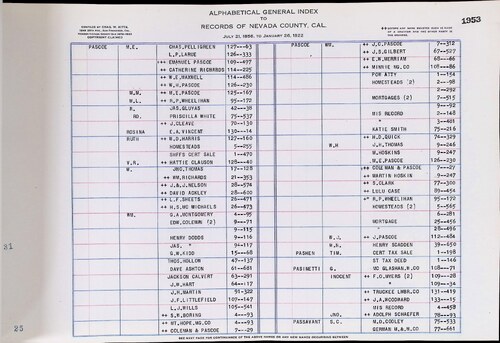 ALPHABETICAL GENERAL INDEX
TO
RECORDS OF NEVADA COUNTY, CAL.
JULY 21, 1856, TO JANUARY 26, 1922
1953
PASCOE CHAS. PELLIGREEN 127—63
L.P. LARUE 126—333
EMANUEL PASCOE 109—497
CATHERINE RICHARDS 114—225
W.E. HANNELL 114—486
W.H. PASCOE 126—230
M.M. M.E. PASCOE 125—167
M.L. R.P. WHEELIHAN 95—172
R. JAS. GLUYAS 42—38
RD. PRISCILLA WHITE 75—537
J. CLEAVE 70—130
ROSINA E.A. VINCENT 130—14
RUTH W.D. HARRIS 127—160
HOMESTEADS 5—255
SHFFS CERT SALE 1—470
V.R. HATTIE CLAUSEN 128—40
W. JNO. THOMAS 17—128
WM. RICHARDS 21—353
J. & J. NELSON 28—574
DAVID ACKLEY 28—600
L.F. SHEETS 26—471
H.S. MC MICHAELS 26—473
WM. G.A. MONTGOMERY 4—95
EDW. COLEMAN (2) 9—71
9—115
HENRY DODDS 9—116
JAS. " 94—117
G.W. KIDD 15—68
THOS. HOLLOW 47—137
DAVE ASHTON 61—681
JACKSON CALVERT 63—291
J.W. HART 64—17
J.R. MARTIN 91—322
J.F. LITTLEFIELD 107—147
L.J. MILLS 105—541
S.W. BORING 4—93
MT. HOPE, MG. CO 4—93
COLEMAN & PASCOE 7—29
PASCOE WM. J.C. PASCOE 7—312
J.S. GILBERT 67—527
E.W. MERRIAM 68—66
MINNIE MG. CO 108—86
POR ATTY 1—154
HOMESTEADS (2) 2—98
2—292
MORTGAGES (2) 7—515
9—92
MIS RECORD 2—148
" 3—401
KATIE SMITH 75—216
M.D. QUICK 74—329
W.H J.H. THOMAS 9—246
M. HOSKINS 9—247
M.E. PASCOE 126—230
COLEMAN & PASCOE 7—27
MARTIN HOSKIN 9—247
S. CLARK 77—300
LULU CASE 89—454
R.F. WHEELIHAN 95—172
HOMESTEADS (2) 5—565
6—281
MORTGAGE 25—456
28—496
W.J. J. PASCOE 112—684
W.R. HENRY SCADDEN 39—650
PASHEN TIM. CERT TAX SALE 1—198
ST TAX DEED 1—146
PASINETTI G. MC GLASHAN, M. CO 108—71
INOCENT F.O. MYERS (2) 109—28
" 109—34
TRUCKEE LMBR. CO 131—419
J.A. WOODWARD 133—115
MIS RECORD 4—458
JNO. ADOLPH SCHAEFER 78—93
PASSAVANT S.C. M.D. COOLEY 75—533
GERMAN M. & M. CO 77—661